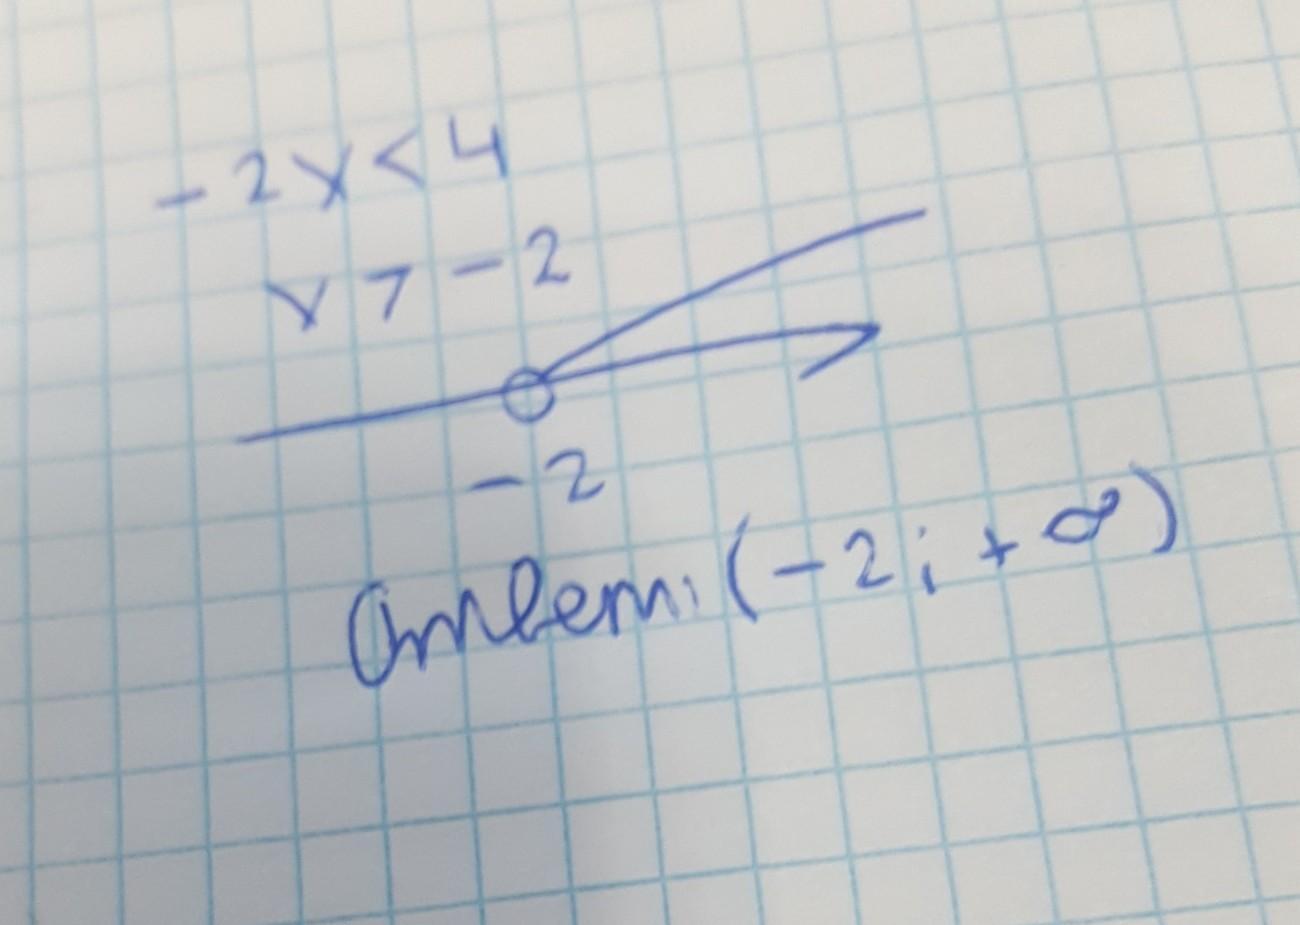 -2x<4
x>-2
-2
Ответ: (-2; +∞)